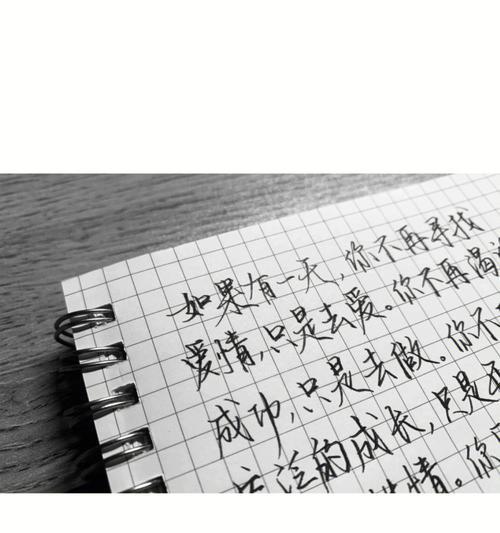 如果有一天,你不再寻找
爱情,只是去爱。你不再渴
成功,只是去做。你不
空泛的成长,只是
性情。你